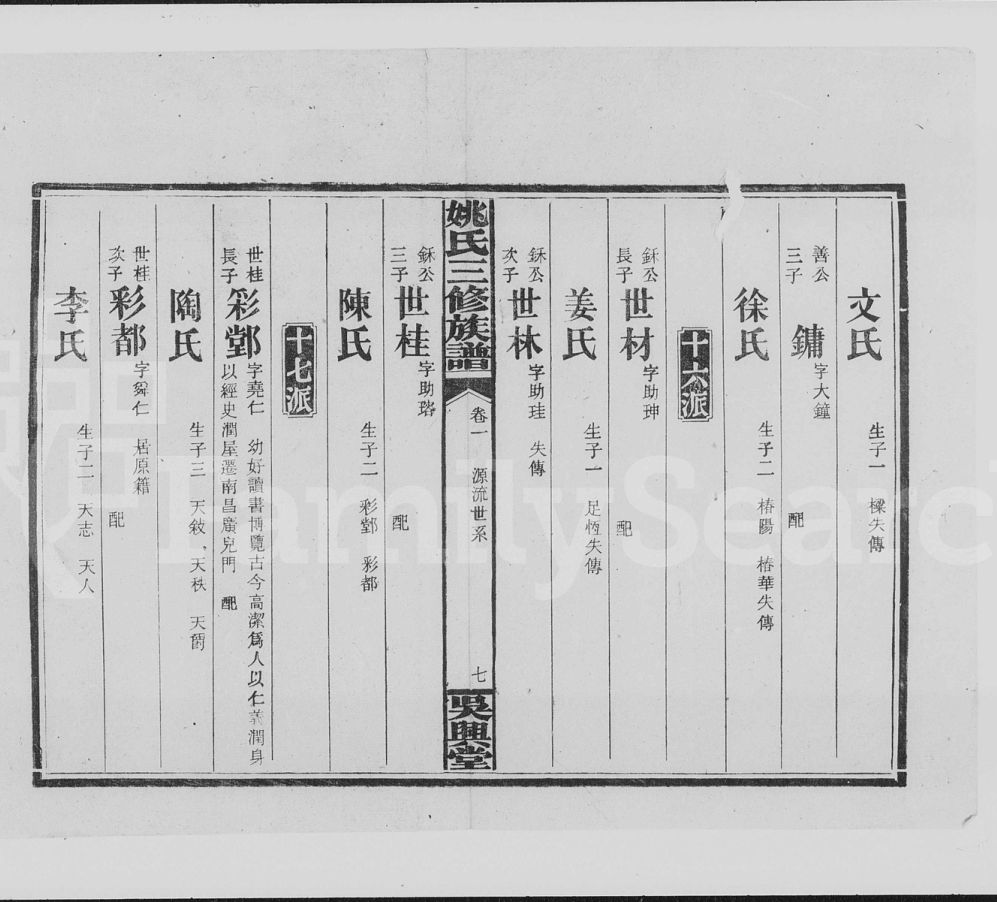 文氏
生子一　樑失傳
善公
三子
鏞
字大鐘
配
徐氏
生子二　椿陽　椿華失傳
十六派
鉌公
長子
世材
字助珅
配
姜氏
生子一　足恆失傳
鉌公
次子
世林
字助珪　失傳
姚氏三修族譜
卷一　源流世系
七
吳興堂
鉌公
三子
世桂
字助瑢
配
陳氏
生子二　彩鄧　彩都
十七派
世桂
長子
彩鄧
字堯仁　幼好讀書博覽古今高潔爲人以仁義潤身
以經史潤屋遷南昌廣兒門　配
陶氏
生子三　天敍　天秩　天爵
世桂
次子
彩都
字舜仁　居原籍
配
李氏
生子二　天志　天人
FamilySearch